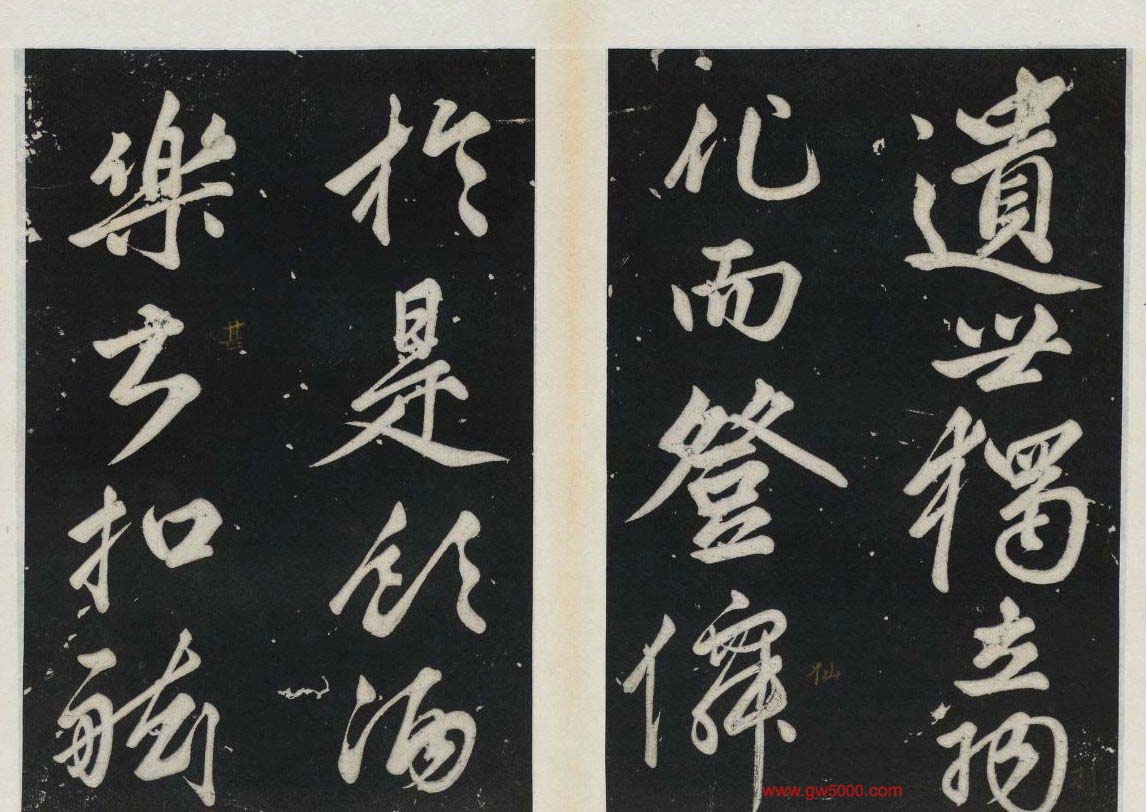 遺世獨立羽
化而登僊
仙
於是飲酒
樂甚扣舷
甚
www.gw5000.com